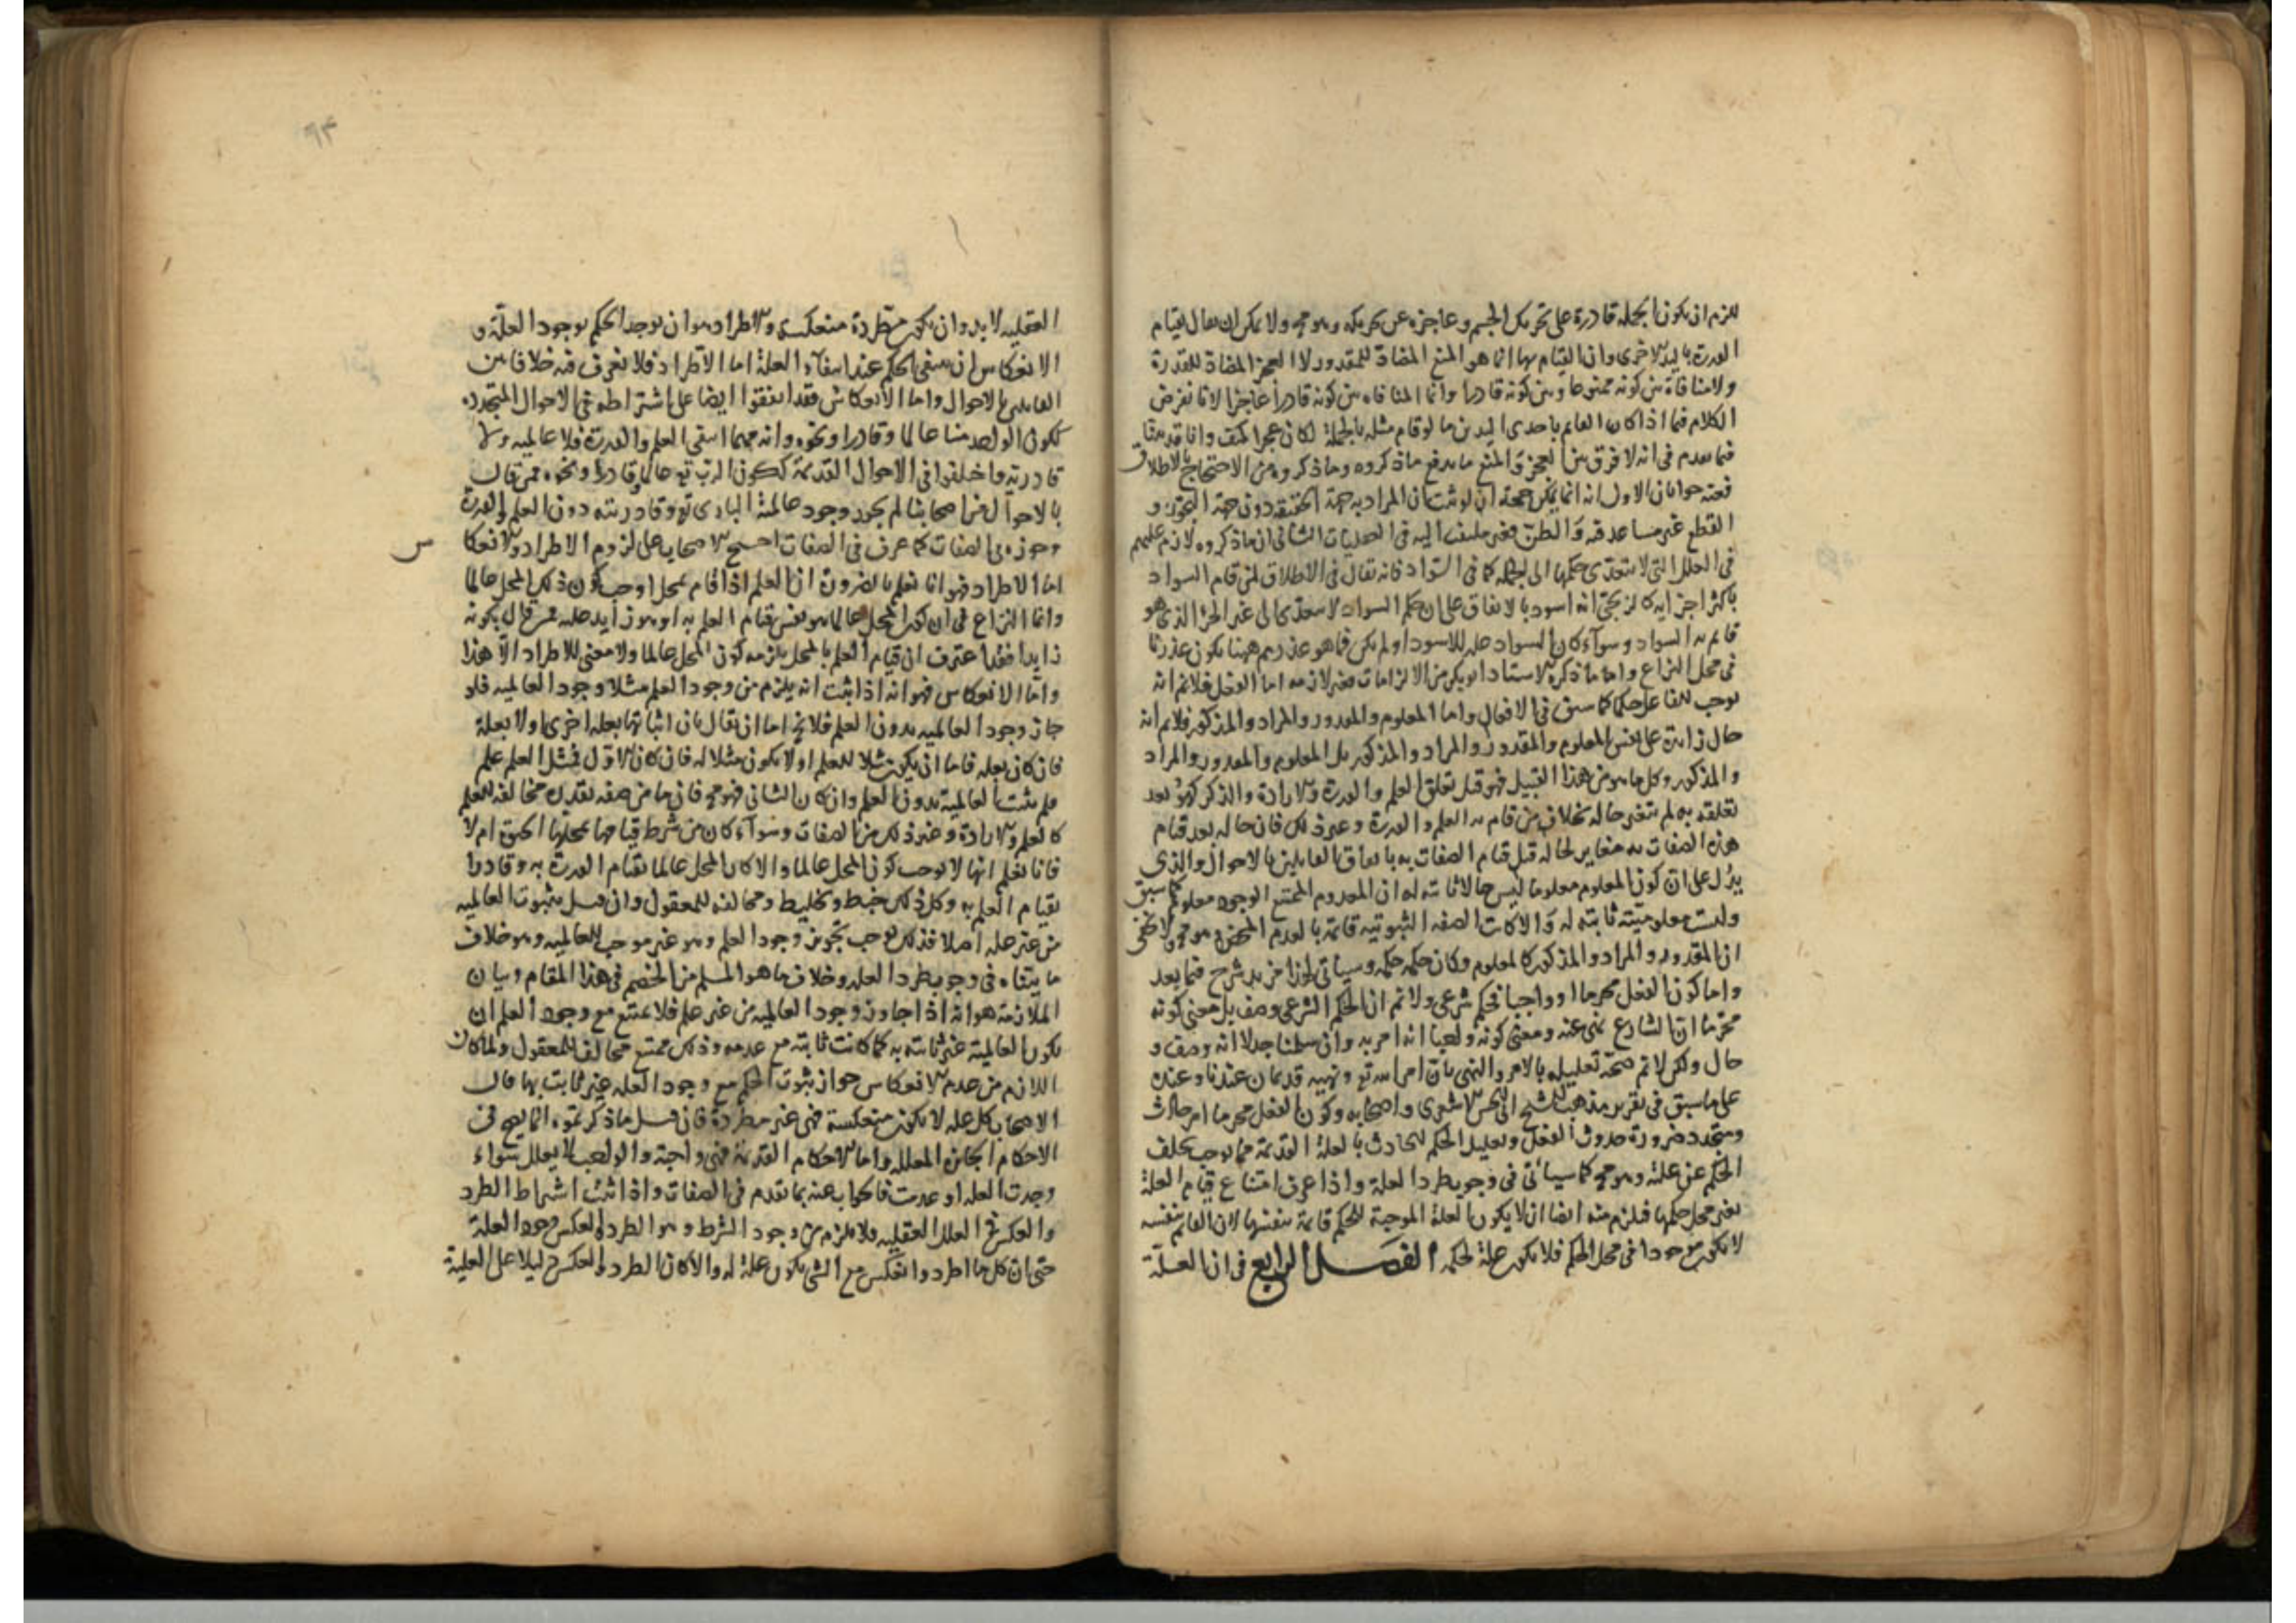 للزم ان يكون الجملة قادرة على تحريك الجسم وعاجزه عن تحريكه وهو مح ولا يمكن ان يقال بقيام
القدرة باليد الاخرى وان القيام بها انما هو المنع المضادة للمقدور لا العجز المضادة للقدرة
ولا منافاة بين كونه ممنوعا وبين كونه قادرا وانما المنافاه بين كونه قادرا عاجزا لانا نفرض
الكلام فيما اذا كان القائم باحدى اليدين ما لو قام مثله بالجملة لكان عجزا كيف وانا قد بينا
فيما تقدم في انه لا فرق بين العجز والمنع ما يدفع ما ذكروه وما ذكروه من الاحتجاج بالاطلاق
فعنه جوابان الاول انه انما يمكن صحة ان لو ثبت ان المراد به جهة الحقيقة دون جهة التجوز و
القطع غير مساعد فيه والظن فغير ملتفت اليه في العقليات الثاني ان ما ذكروه لازم عليهم
في العلل التي لا يتعدى حكمها الى الجملة كما في السواد فانه يقال في الاطلاق لمن قام السواد
باكثر اجزايه كالزنجي انه اسود بالاتفاق على ان حكم السواد لا يتعدى الى غير الجزء الذي هو
قائم به السواد وسواء كان السواد عله للاسود او لم يكن فما هو عذرهم ههنا يكون عذرنا
في محل النزاع واما ما ذكره الاستاد ابو بكر من الالزامات فغير لازمه اما الفعل فلا نم انه
يوجب للفاعل حكما كما سبق في الافعال واما المعلوم والمقدور والمراد والمذكور فلا نم انه
حال زايدة على نفس المعلوم والمقدور والمراد والمذكور بل المعلوم والمقدور والمراد
والمذكور وكل ما هو من هذا القبيل فهو قبل تعلق العلم والقدرة والارادة والذكر كهو بعد
تعلقه به لم يتغير حاله بخلاف من قام به العلم والقدرة وغير ذلك فان حاله بعد قيام
هذه الصفات به مغاير لحاله قبل قيام الصفات به باتفاق القايلين بالاحوال والذي
يدل على ان كون المعلوم معلوما ليس حالا ثابته له ان المعدوم الممتنع الوجود معلوم كما سبق
وليست معلوميته ثابته له والا كانت الصفه الثبوتيه قائمة بالعدم المحض وهو مح ولا يخفى
ان المقدور والمراد والمذكور كالمعلوم وكان حكمه حكمه وسياتي لهذا مزيد شرح فيما بعد
واما كون الفعل محرما او واجبا فحكم شرعي ولا نم ان الحكم الشرعي وصف بل معنى كونه
محرما ان الشارع نهى عنه ومعنى كونه واجبا انه امر به وان سلمنا جدلا انه وصف و
حال ولكن لا نم صحة تعليله بالامر والنهي بان امر الله تع ونهيه قديمان عندنا وعنده
على ما سبق في تقرير مذهب الشيخ ابي الحسن الاشعري واصحابه وكون الفعل محرما امر حادث
ومتجدد ضرورة حدوث الفعل وتعليل الحكم الحادث بالعلة القديمة مما يوجب تخلف
الحكم عن علته وهو مح كما سياتي في وجوب طرد العلة واذا عرف امتناع قيام العلة
بغير محل حكمها فيلزم منه ايضا ان لا يكون العلة الموجبة للحكم قائمة بنفسها لان القائم بنفسه
لا يكون موجودا في محل الحكم فلا يكون علة لحكمه الفصل الرابع في ان العلة
٩٣
العقليه لا بد وان يكون مطردة منعكسة والاطراد هو ان يوجد الحكم بوجود العلة و
الانعكاس ان ينتفي الحكم عند انتفاء العلة اما الاطراد فلا نعرف فيه خلافا بين
القايلين بالاحوال واما الانعكاس فقد اتفقوا ايضا على اشتراطه في الاحوال المتجدده
ككون الواحد منا عالما وقادرا ونحوه وانه مهما انتفى العلم والقدرة فلا عالميه ولا
قادرية واختلفوا في الاحوال القديمة ككون الرب تع عالما وقادرا ونحوه فمن قال
بالاحوال من اصحابنا لم يجوز وجود عالمية البارى تع وقادريته دون العلم والقدرة
وجوزه نفى الصفات كما عرف في الصفات احتج الاصحاب على لزوم الاطراد والانعكا
س
اما الاطراد فهو انا نعلم بالضرورة ان العلم اذا قام بمحل اوجب كون ذلك المحل عالما
وانما النزاع في ان كون المحل عالما هو نفس قيام العلم به او هو زايد عليه فمن قال بكونه
زايدا فقد اعترف ان قيام العلم بالمحل يلزمه كون المحل عالما ولا معنى للاطراد الا هذا
واما الانعكاس فهو انه اذا ثبت انه يلزم من وجود العلم مثلا وجود العالميه فلو
جاز وجود العالميه بدون العلم فلا يخ اما ان يقال بان اثباتها بعله اخرى او لا بعلة
فان كان بعله فاما ان يكون مثلا للعلم او لا يكون مثلا له فان كان الاول فمثل العلم علم
فلم يثبت العالمية بدون العلم وان كان الثاني فهو مح فان ما من صفه تقدر مخالفه للعلم
كالعلم والارادة وغير ذلك من الصفات وسواء كان من شرط قيامها بمحلها الحيوة ام لا
فانا نعلم انها لا توجب كون المحل عالما والا كان المحل عالما بقيام القدرة به وقادرا
بقيام العلم به وكل ذلك خبط وتخليط ومخالفه للمعقول وان قيل بثبوت العالميه
من غير علة اصلا فذلك يوجب تجويز وجود العلم وهو غير موجب للعالميه وهو خلاف
ما بيناه في وجوب طرد العلة وخلاف ما هو المسلم من الخصم في هذا المقام وبيان
الملازمة هو انه اذا جاز وجود العالميه من غير علم فلا يمتنع مع وجود العلم ان
يكون العالمية غير ثابته به كما كانت ثابته مع عدمه وذلك ممتنع مخالف للمعقول ولما كان
اللازم من عدم الانعكاس جواز ثبوت الحكم مع وجود العله غير ثابت بها قال
الاصحاب كل عله لا يكون منعكسة فهي غير مطردة فان قيل ما ذكرتموه انما يصح في
الاحكام الجائزه المعلله واما الاحكام القديمة فهي واجبة والواجب لا يعلل سواء
وجدت العله او عدمت فالجواب عنه بما تقدم في الصفات واذا ثبت اشتراط الطرد
والعكس في العلل العقليه فلا يلزم من وجود الشرط وهو الطرد والعكس وجود العلة
حتى ان كل ما اطرد وانعكس مع الشي يكون علة له والا كان الطرد والعكس دليلا على العلية